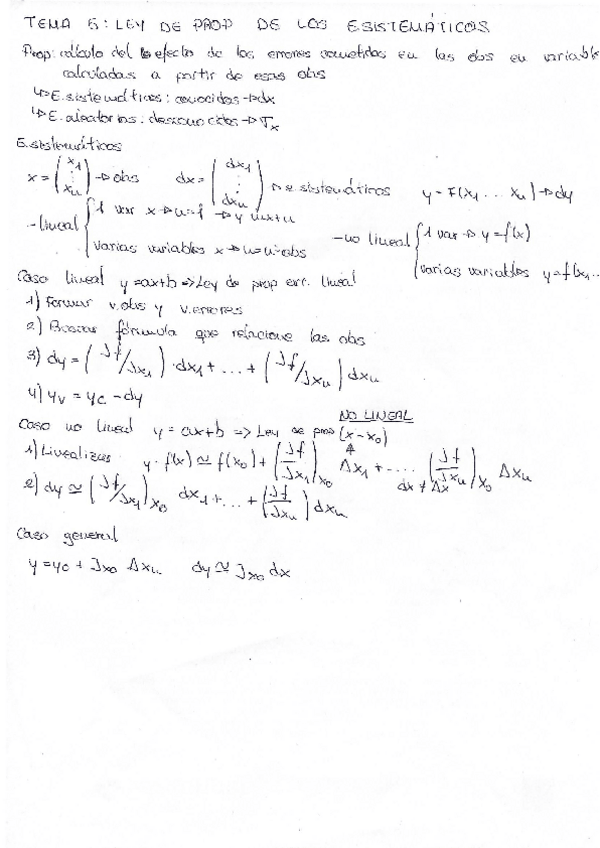 TEMA 5: LEY DE PROP DE LOS E SISTEMÁTICOS
Prop: cálculo del efecto de los errores cometidos en las obs en variable
calculadas a partir de esas obs
↳ E. sistemáticos: conocidos → dx
↳ E. aleatorios: desconocidos → Tx
E. sistemáticos
x = (x1 ⋮ xn) → obs dx = (dx1 ⋮ dxn) → e. sistemáticos y = F(x1 ... xn) → dy
- lineal { 1 var x → n=1 → y
varias variables x → n = nº obs
- no lineal { 1 var → y = f(x)
varias variables y = f(x1...
Caso lineal y = ax+b => Ley de prop err. lineal
1) Formar v. obs y v. errores
2) Buscar fórmula que relacione las obs
3) dy = (Jf/Jx1) · dx1 + ... + (Jf/Jxn) dxn
4) yv = yc - dy
Caso no lineal y = ax+b => Ley de prop NO LINEAL
(x - x0)
1) Linealizar y = f(x) ≃ f(x0) + (Jf/Jx1)x0 Δx1 + .... (Jf/Jxn)x0 Δxn
dx ≠ Δx
2) dy ≃ (Jf/Jx1)x0 dx1 + ... + (Jf/Jxn) dxn
Caso general
y = yc + Jx0 Δxn dy ≃ Jx0 dx